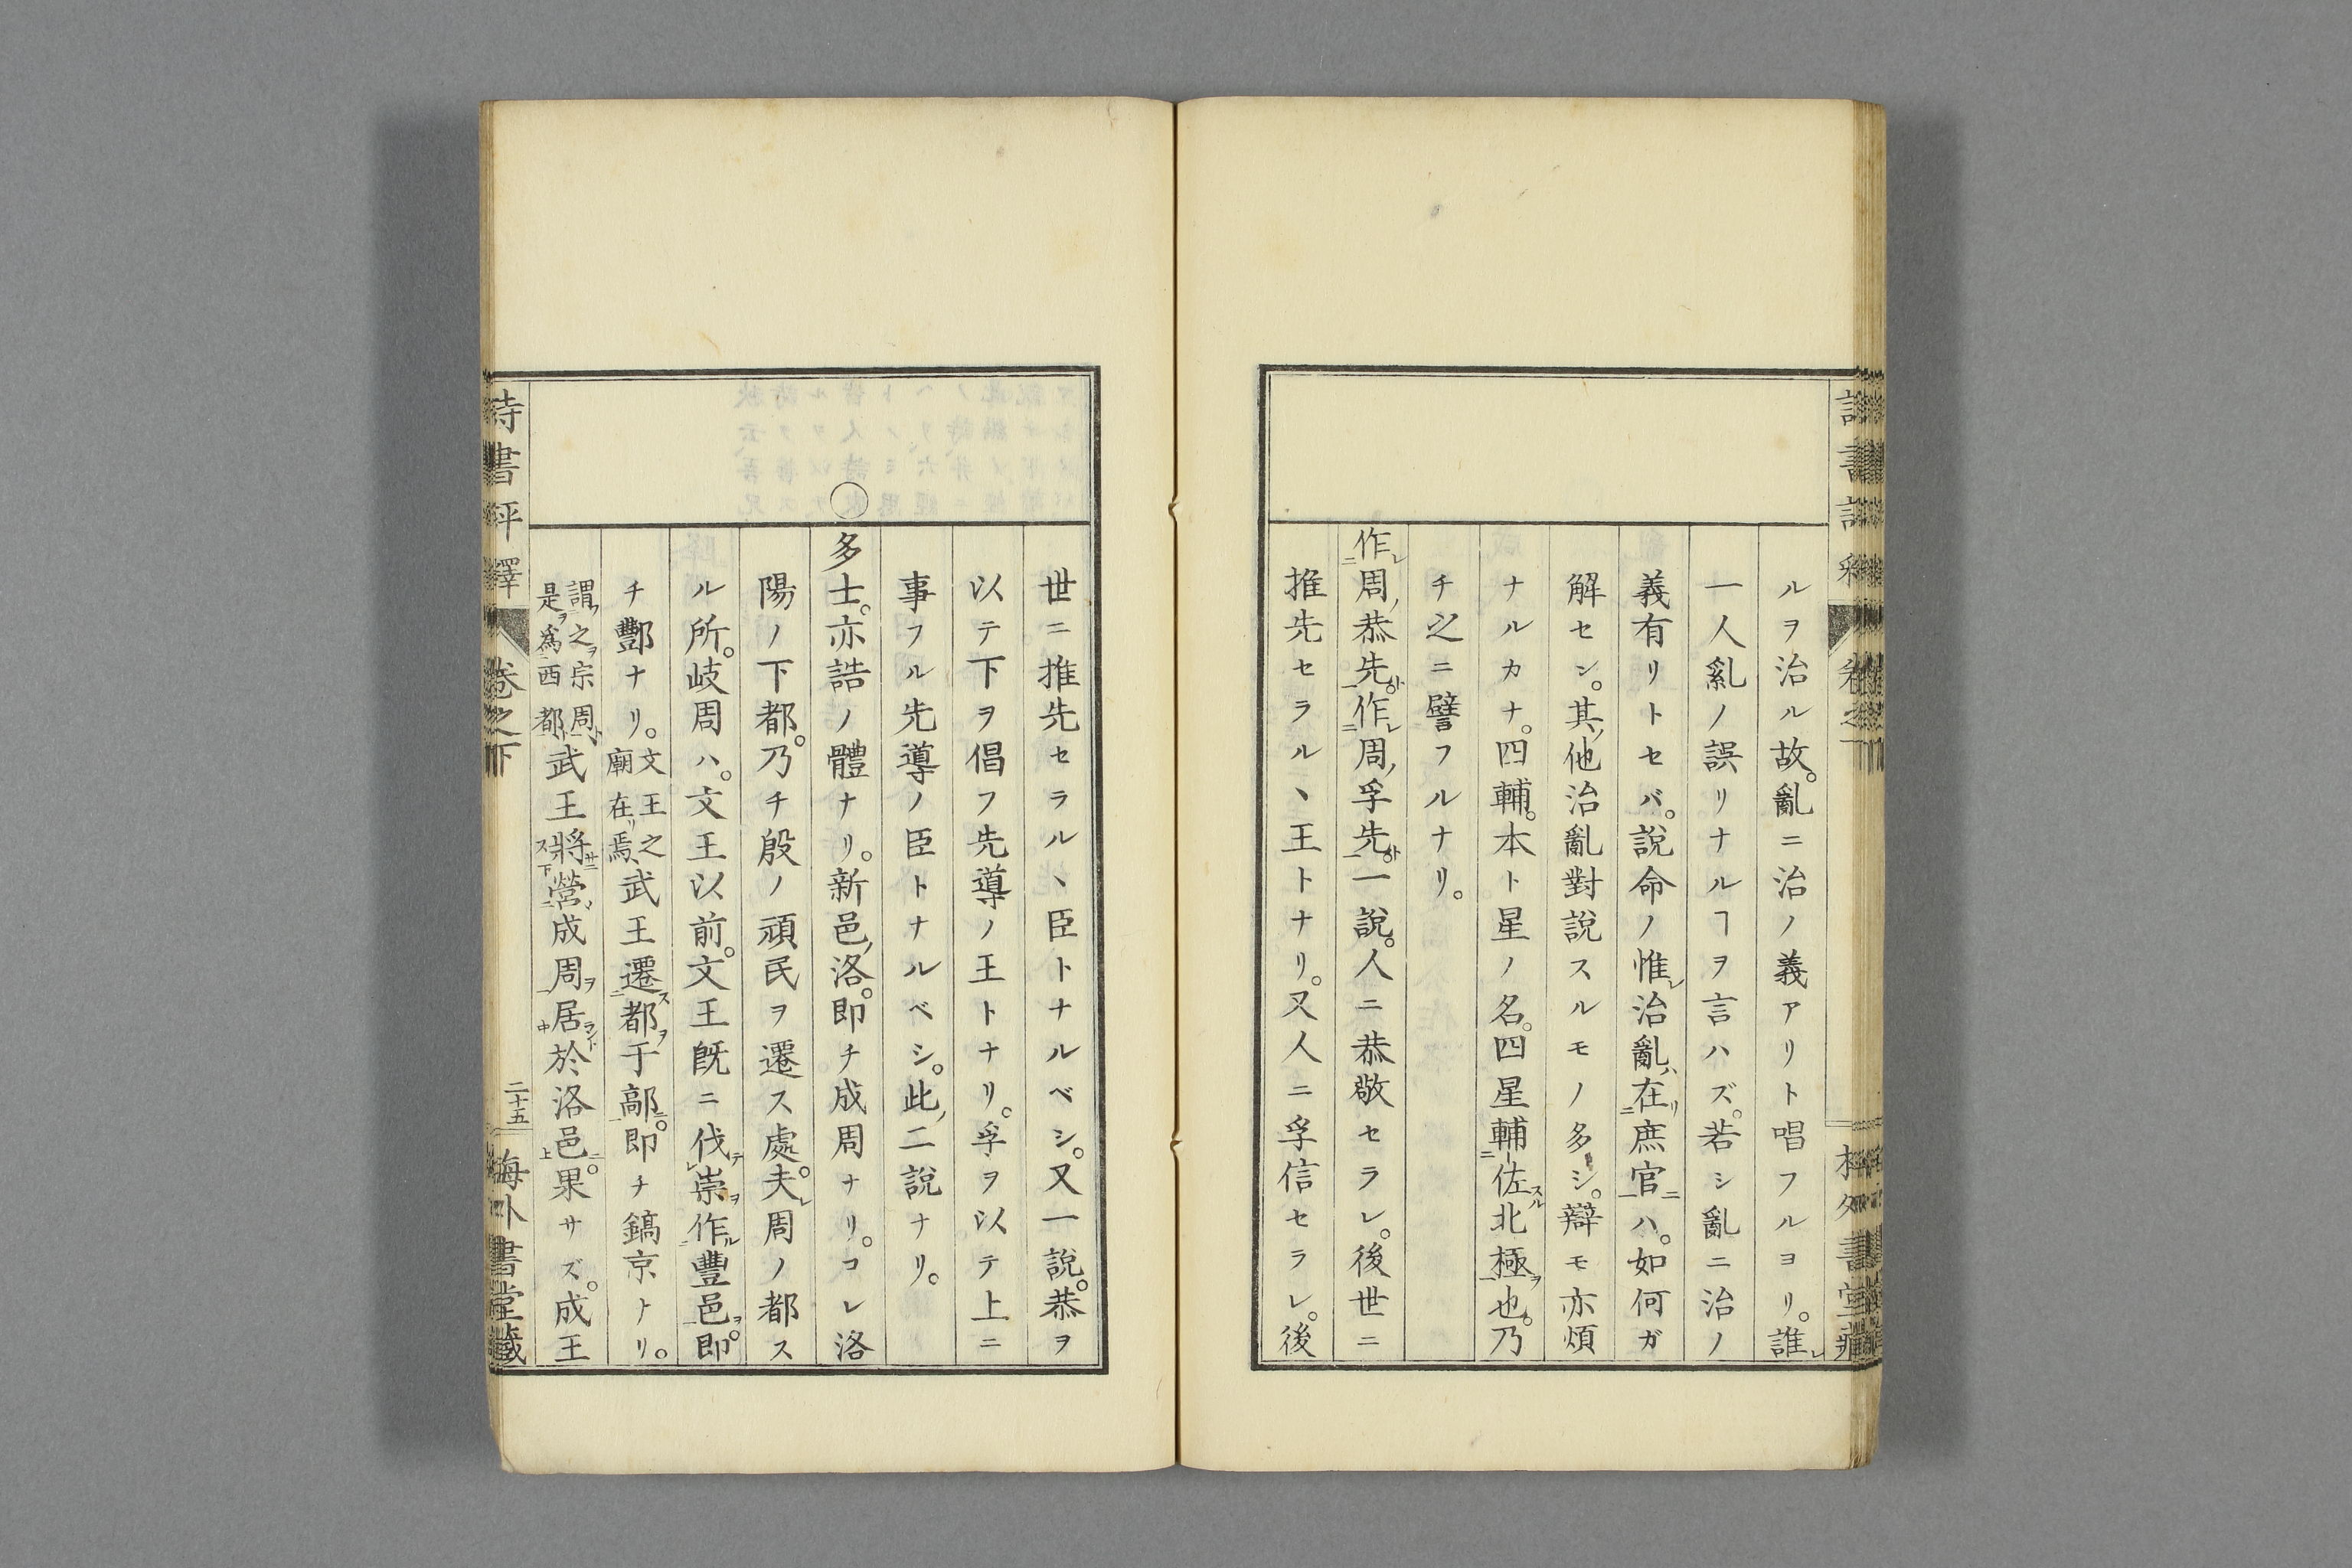 ルヲ治ル故。亂ニ治ノ義アリト唱フルヨリ。誰
一人亂ノ誤リナルヿヲ言ハズ。若シ亂ニ治ノ
義有リトセバ。說命ノ惟治亂在庶官ハ。如何ガ
解セン。其他治亂對說スルモノ多シ。辯モ亦煩
ナルカナ。四輔。本ト星ノ名。四星輔佐北極也。乃
チ之ニ譬フルナリ。
作周恭先作周孚先一說。人ニ恭敬セラレ。後世ニ
推先セラルヽ王トナリ。又人ニ孚信セラレ。後
世ニ推先セラルヽ臣トナルベシ。又一說。恭ヲ
以テ下ヲ倡フ先導ノ王トナリ。孚ヲ以テ上ニ
事フル先導ノ臣トナルベシ。此二說ナリ。
〇多士。亦誥ノ體ナリ。新邑洛。即チ成周ナリ。コレ洛
陽ノ下都。乃チ殷ノ頑民ヲ遷ス處。夫周ノ都ス
ル所。岐周ハ。文王以前。文王既ニ伐崇作豐邑。即
チ酆ナリ。文王之廟在焉武王遷都于鄗。即チ鎬京ナリ。
謂之宗周是爲西都武王將營成周居於洛邑。果サズ。成王
詩書評釋 卷之下 二十五 海外書堂藏